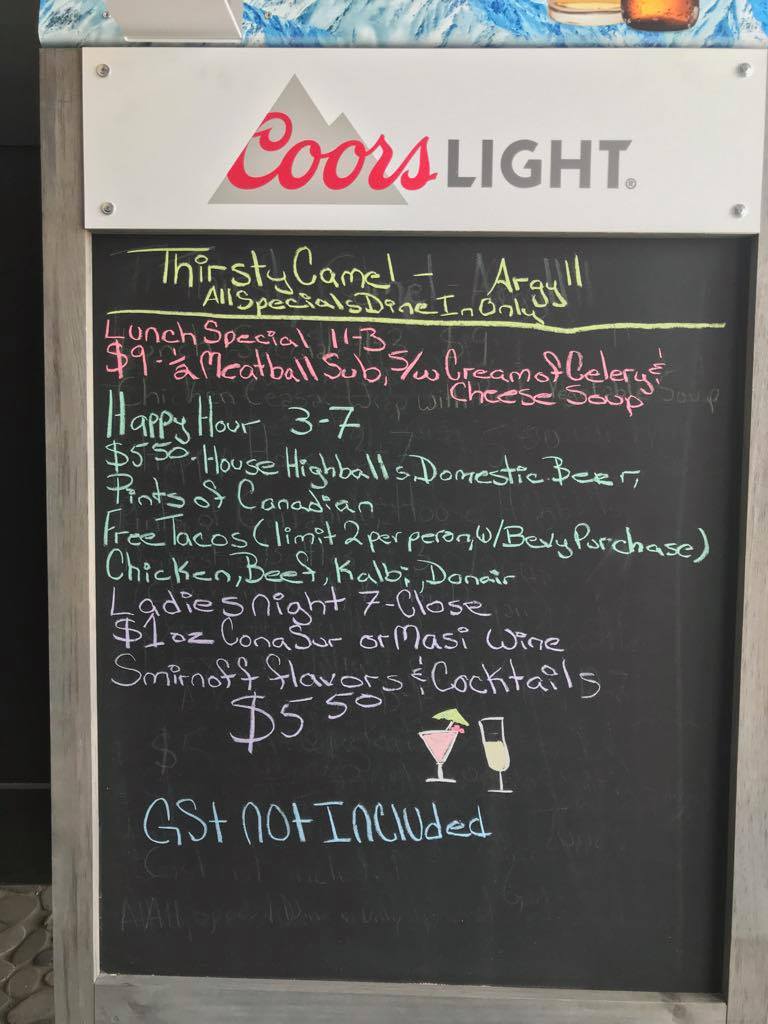 Coors LIGHT®
Thirsty Camel - Argyll
All Specials Dine In Only
Lunch Special 11-3
$9 - ½ Meatball Sub, S/w Cream of Celery &
Cheese Soup
Happy Hour 3-7
$5.50 - House Highballs, Domestic Beer,
Pints of Canadian
Free Tacos (limit 2 per peron, w/Bevy Purchase)
Chicken, Beef, Kalbi, Donair
Ladies night 7-Close
$1oz ConaSur or Masi Wine
Smirnoff flavors & Cocktails
$5.50
GSt not Included